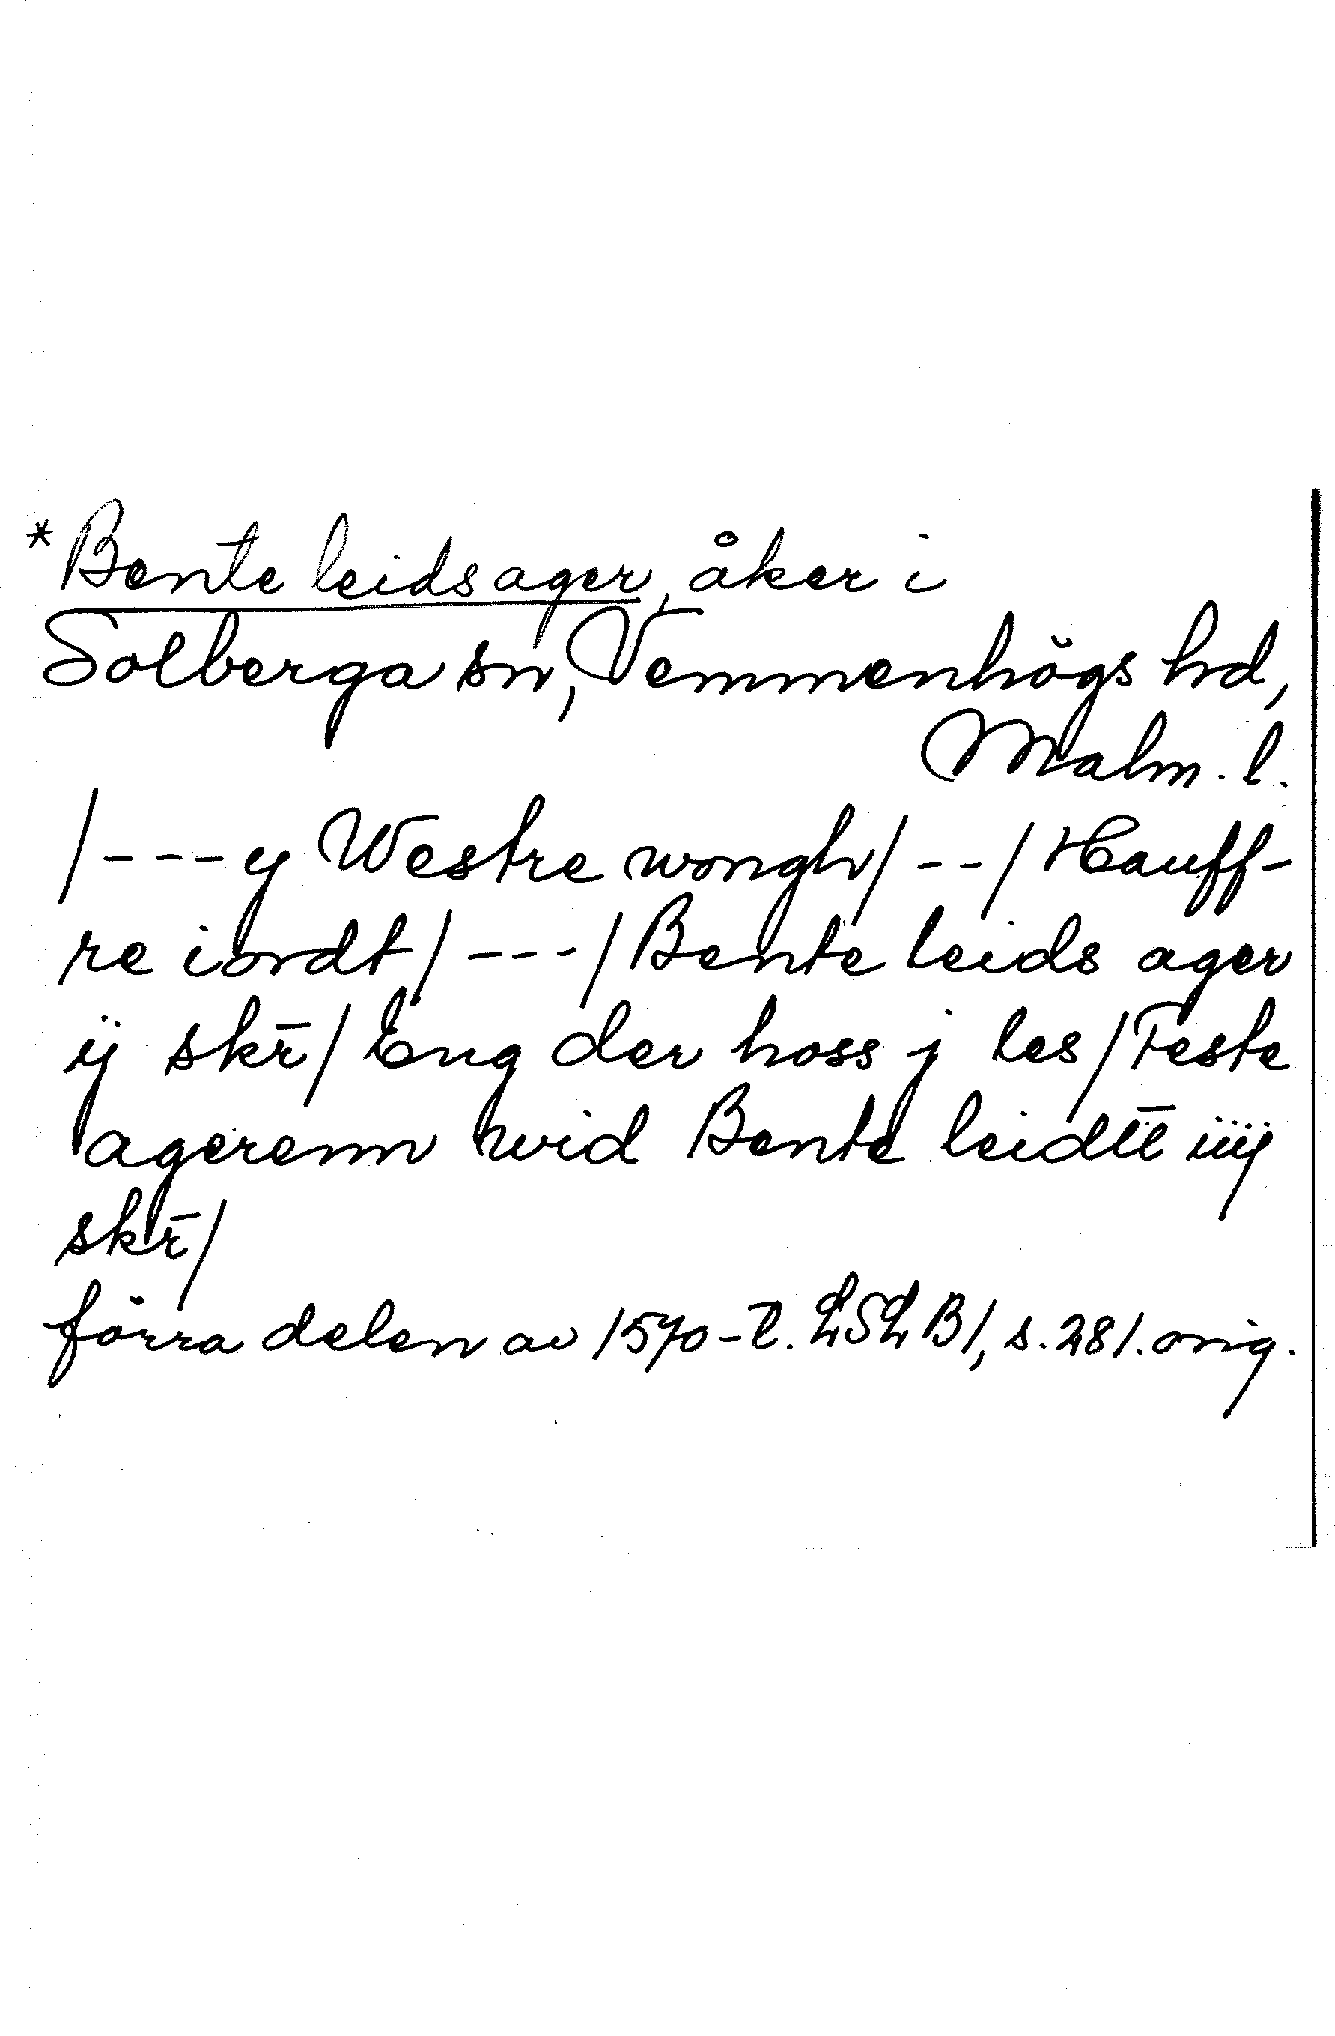 *Bente leids ager, åker i
Solberga sn, Vemmenhögs hd,
Malm. l.
/---y Westre wongh/--/Hauff-
re iordt/---/Bente leids ager
ij skr̄/Eng der hoss j les/Feste
agerenn wid Bente leidtt̄ iiij
skr̄/
förra delen av 1570-t. LSLB1, s.281.orig.